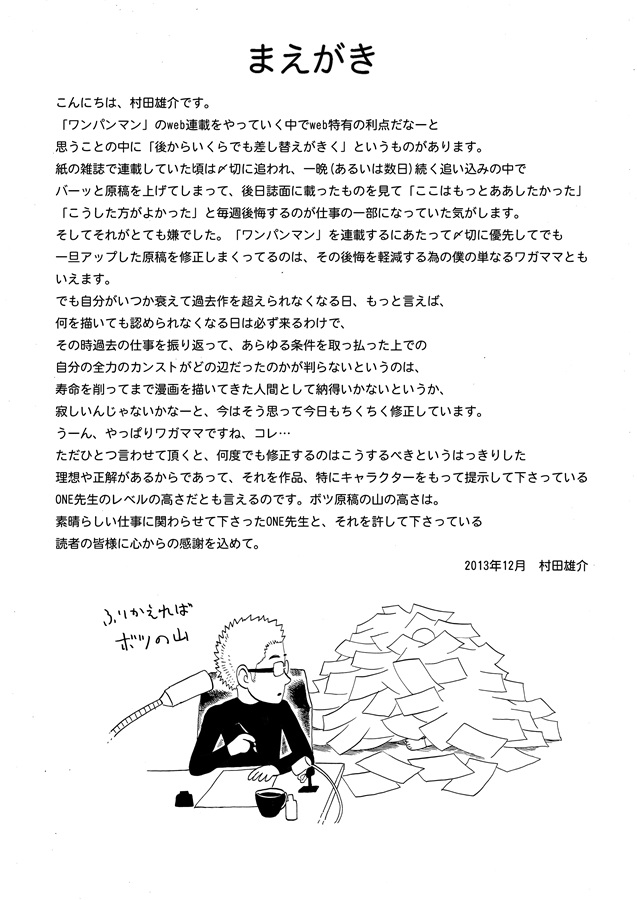 まえがき
こんにちは、村田雄介です。
「ワンパンマン」のweb連載をやっていく中でweb特有の利点だなーと
思うことの中に「後からいくらでも差し替えがきく」というものがあります。
紙の雑誌で連載していた頃は〆切に追われ、一晩(あるいは数日)続く追い込みの中で
バーッと原稿を上げてしまって、後日誌面に載ったものを見て「ここはもっとああしたかった」
「こうした方がよかった」と毎週後悔するのが仕事の一部になっていた気がします。
そしてそれがとても嫌でした。「ワンパンマン」を連載するにあたって〆切に優先してでも
一旦アップした原稿を修正しまくってるのは、その後悔を軽減する為の僕の単なるワガママとも
いえます。
でも自分がいつか衰えて過去作を超えられなくなる日、もっと言えば、
何を描いても認められなくなる日は必ず来るわけで、
その時過去の仕事を振り返って、あらゆる条件を取っ払った上での
自分の全力のカンストがどの辺だったのかが判らないというのは、
寿命を削ってまで漫画を描いてきた人間として納得いかないというか、
寂しいんじゃないかなーと、今はそう思って今日もちくちく修正しています。
うーん、やっぱりワガママですね、コレ…
ただひとつ言わせて頂くと、何度でも修正するのはこうするべきというはっきりした
理想や正解があるからであって、それを作品、特にキャラクターをもって提示して下さっている
ONE先生のレベルの高さだとも言えるのです。ボツ原稿の山の高さは。
素晴らしい仕事に関わらせて下さったONE先生と、それを許して下さっている
読者の皆様に心からの感謝を込めて。
2013年12月　村田雄介
ふりかえれば
ボツの山